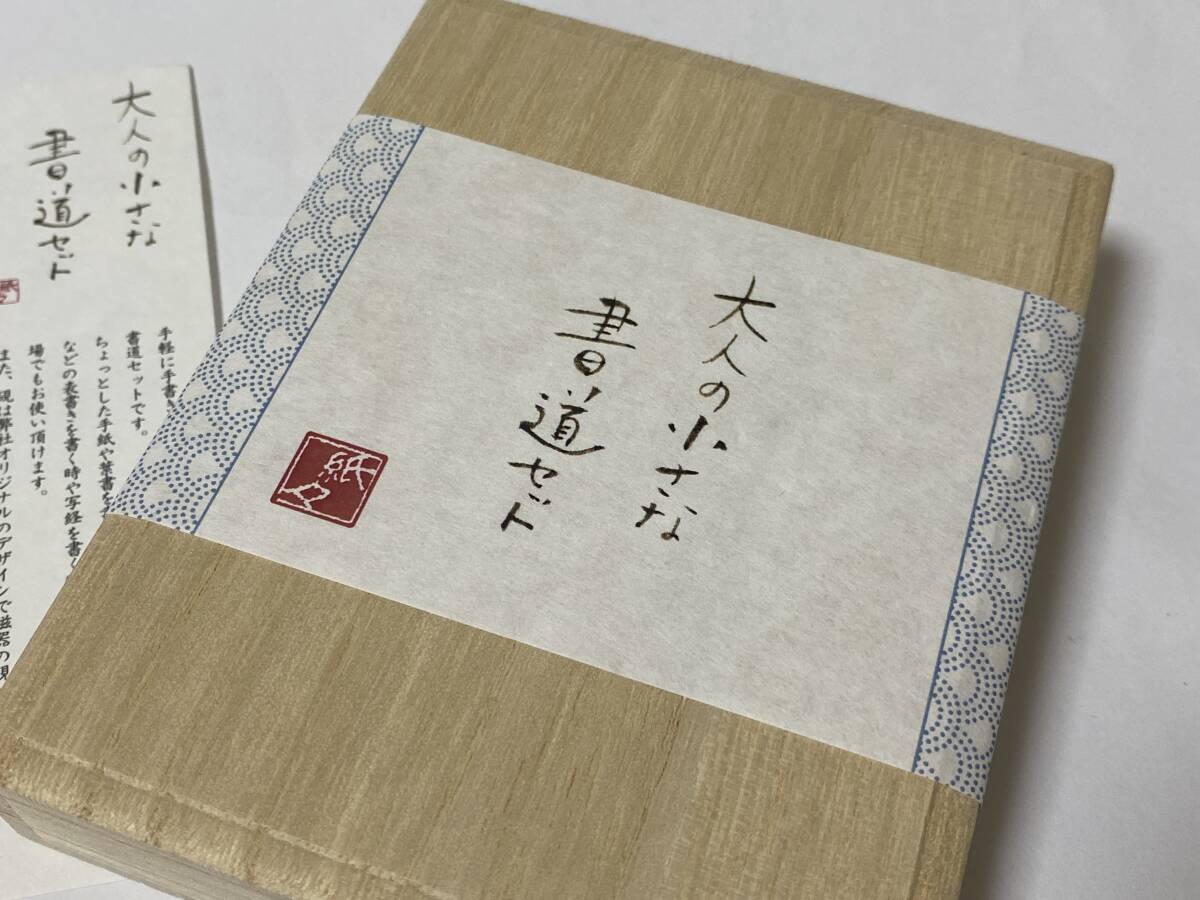 大人の小さな
書道セット
紙々
大人の小さな
書道セット
紙々
手軽に手書き
書道セットです。
ちょっとした手紙や葉書を
などの表書きを書く時や写経を書く
場でもお使い頂けます。
また、硯は弊社オリジナルのデザインで磁器の硯